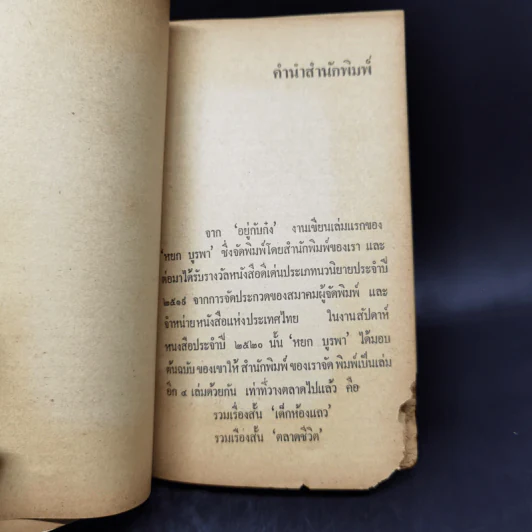 คำนำสำนักพิมพ์
จาก ‘อยู่กับก๋ง’ งานเขียนเล่มแรกของ
‘หยก บูรพา’ ซึ่งจัดพิมพ์โดยสำนักพิมพ์ของเรา และ
ต่อมาได้รับรางวัลหนังสือดีเด่นประเภทนวนิยายประจำปี
๒๕๑๙ จากการจัดประกวดของสมาคมผู้จัดพิมพ์ และ
จำหน่ายหนังสือแห่งประเทศไทย ในงานสัปดาห์
หนังสือประจำปี ๒๕๒๐ นั้น ‘หยก บูรพา’ ได้มอบ
ต้นฉบับ ของเขาให้ สำนักพิมพ์ ของเราจัด พิมพ์เป็นเล่ม
อีก ๔ เล่มด้วยกัน เท่าที่วางตลาดไปแล้ว คือ
รวมเรื่องสั้น ‘เด็กห้องแถว’
รวมเรื่องสั้น ‘ตลาดชีวิต’